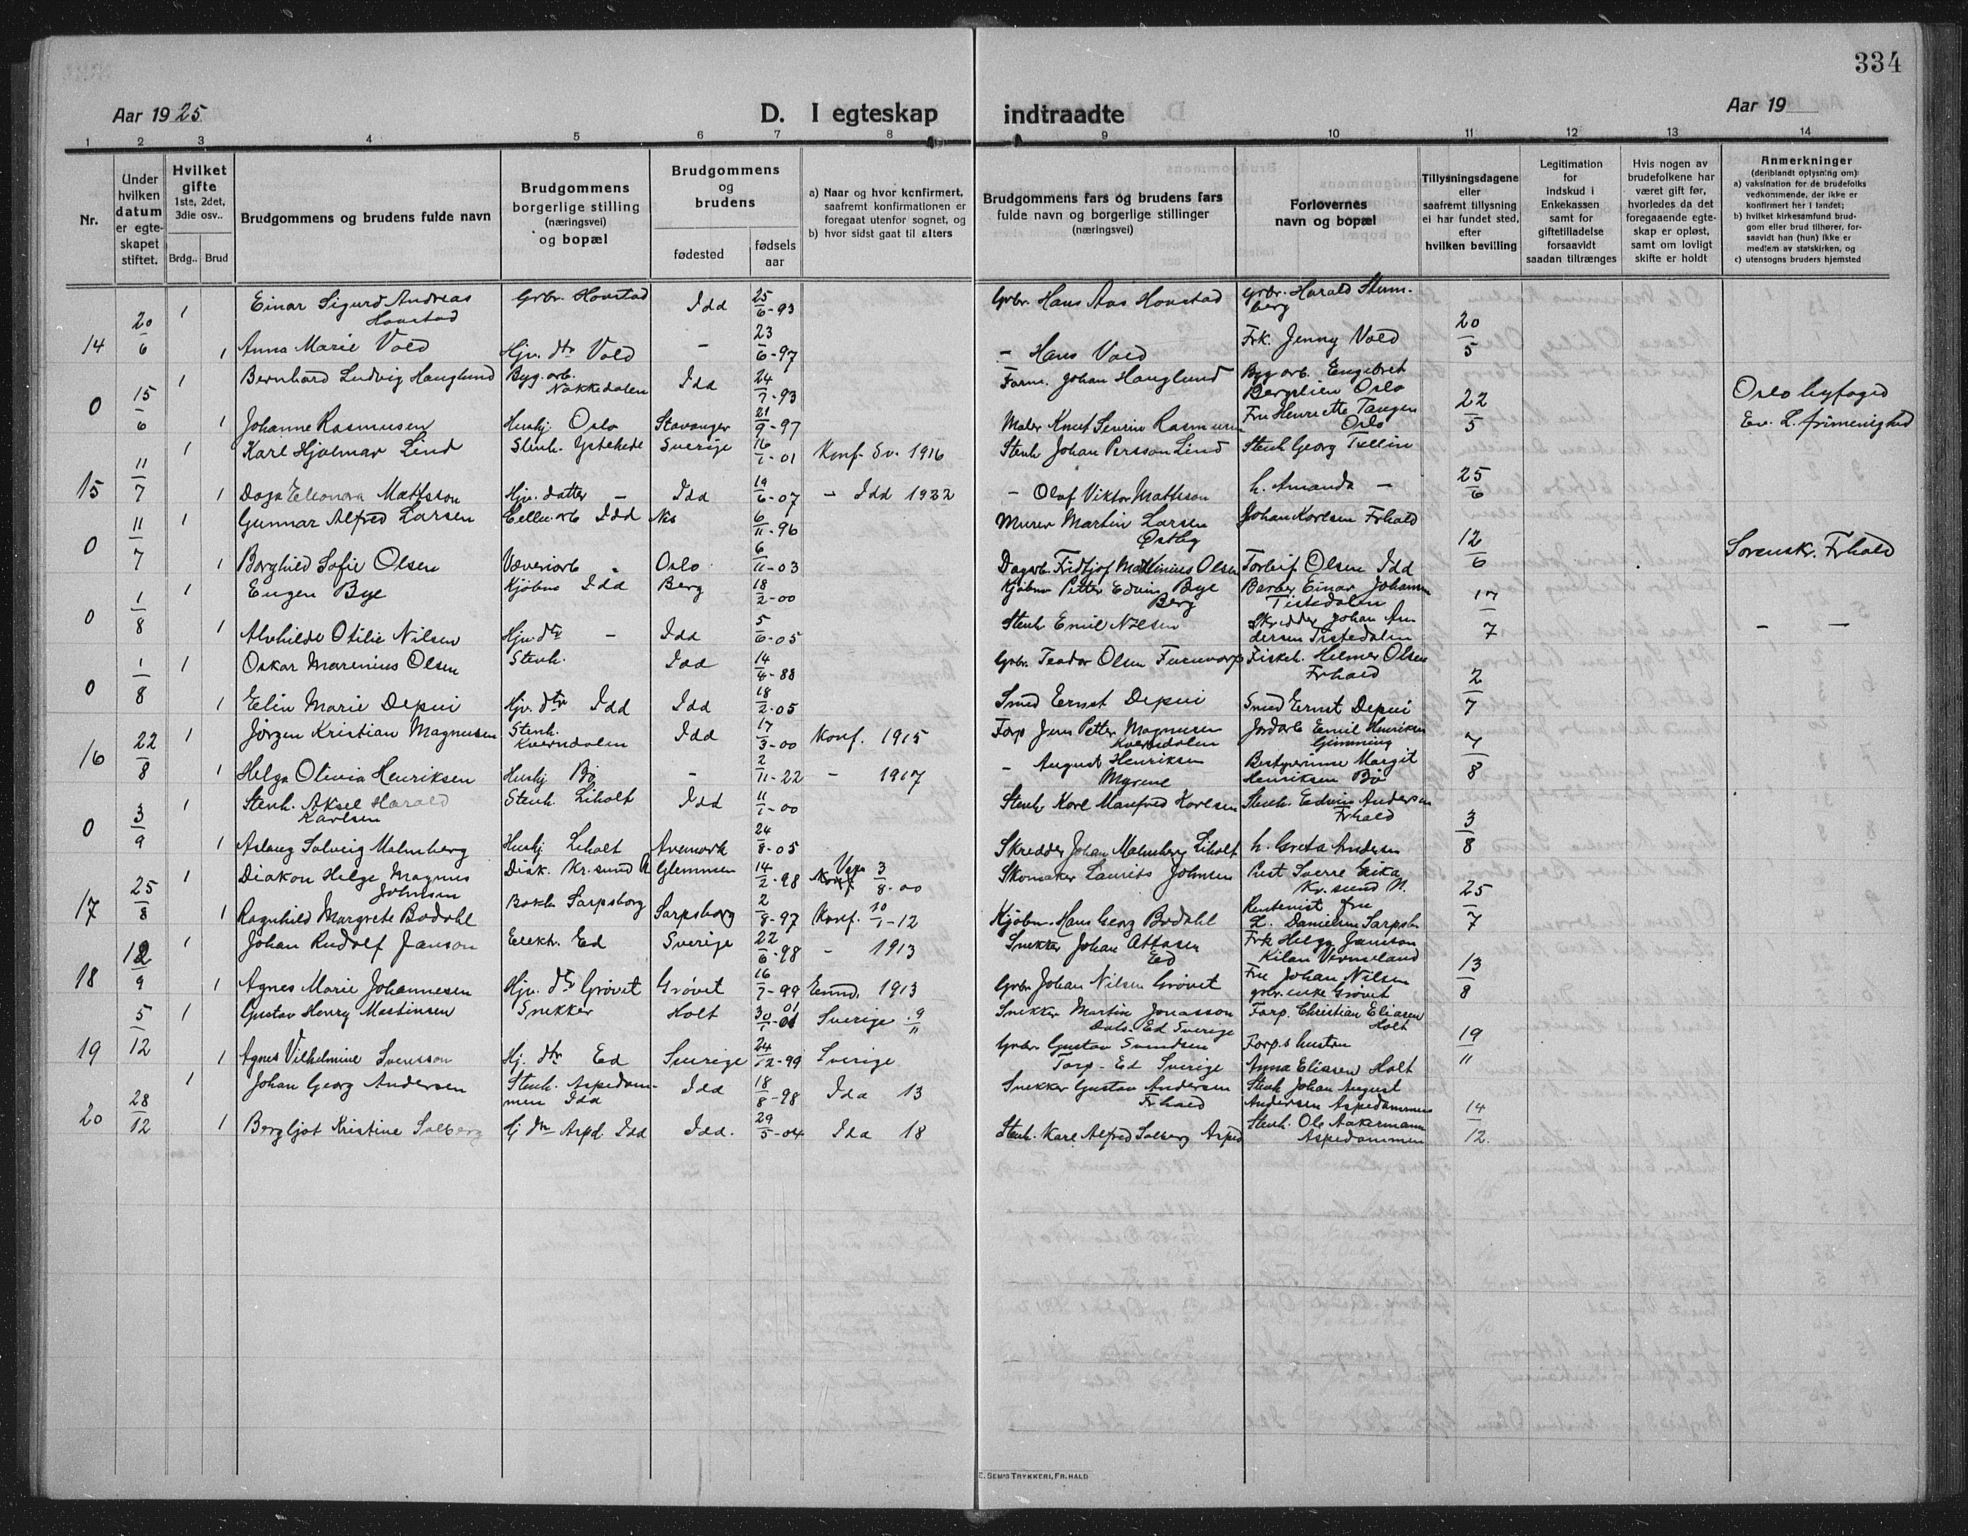 334
Aar 1925 D. I egteskap indtraadte Aar 19
1 2 3 4 5 6 7 8 9 10 11 12 13 14
Nr.
Under hvilken datum er egteskapet stiftet.
Hvilket gifte 1ste, 2det, 3die osv..
Brdg.. Brud
Brudgommens og brudens fulde navn
Brudgommens borgerlige stilling (næringsvei) og bopæl
Brudgommens og brudens
fødested fødsels aar
a) Naar og hvor konfirmert, saafremt konfirmationen er foregaat utenfor sognet, og
b) hvor sidst gaat til alters
Brudgommens fars og brudens fars fulde navn og borgerlige stillinger (næringsvei)
Forlovernes navn og bopæl
Tillysningsdagene eller saafremt tillysning ei har fundet sted, efter hvilken bevilling
Legitimation for indskud i Enkekassen samt for giftetilladelse forsaavidt saadan tiltrænges
Hvis nogen av brudefolkene har været gift før, hvorledes da det foregaaende egteskap er opløst, samt om lovligt skifte er holdt
Anmerkninger (deriblandt oplysning om):
a) vaksination for de brudefolks vedkommende, der ikke er konfirmert her i landet;
b) hvilket kirkesamfund brudgom eller brud tilhører, forsaavidt han (hun) ikke er medlem av statskirken, og
c) utensogns bruders hjemsted
14 20/6 1 Einar Sigurd Andreas Hovstad Grbr. Hovstad Idd 25/6-93 Grbr. Hans Aas Hovstad Grbr. Harald Stumberg 20/5
1 Anna Marie Vold Hjv. dtr Vold - 23/6-97 - Hans Vold Frk. Jenny Vold
0 15/6 1 Bernhard Ludvig Hauglund Byg. arb. Nakkedalen Idd 24/7-93 Form. Johan Hauglund Byg arb. Engebret Bergslien Oslo 22/5 Oslo byfoged
1 Johanne Rasmussen Hushj. Oslo Stavanger 21/9-97 Maler Knut Severin Rasmussen Fru Henriette Tangen Oslo Ev. L. frimenighed
15 11/7 1 Karl Hjalmar Lind Stenh. Ystehede Sverige 16/1-01 Konf. Sv. 1916 Stenh Johan Persson Lind Stenh Georg Tellin 25/6
1 Daga Eleonora Mattsson Hjv. datter - Idd 19/6-07 - Idd 1922 - Olof Viktor Mattsson h. Amanda -
0 11/7 1 Gunnar Alfred Larsen Cellu. arb Idd Nes 6/11-96 Murer Martin Larsen Østby Johan Karlsen Frhald 12/6
1 Borghild Sofie Olsen Væveriarb - Oslo 6/11-03 Dagarb. Fridtjof Mathinius Olsen Torleif Olsen Idd Sorenskr. Frhald
0 1/8 1 Eugen Bye Kjøbm Idd Berg 18/2-00 Kjøbm Petter Edvin Bye Berg Barber Einar Johannsen Tistedalen 17/7
1 Alvhilde Otilie Nilsen Hjv. dtr - Idd 5/6-05 Stenh Emil Nilsen Skredder Johan Andersen Tistedalen - -
0 1/8 1 Oskar Marinius Olsen Stenh. Idd 14/4-88 Grbr. Teodor Olsen Fiskeh. Hilmer Olsen Frhald 2/7
1 Elin Marie Depui Hjv. dtr Idd Idd 18/2-05 Smed Ernst Depui Smed Ernst Depui
16 22/8 1 Jørgen Kristian Magnusen Stenh. Kverndalen Idd 17/3-00 Konf. 1915 Forp Jens Petter Magnusen Kverndalen Jordarb Emil Henriksen Gimming 7/8
1 Helga Olivia Henriksen Hushj Bø - 2/11-22 - 1917 - August Henriksen Myrene Bestyrerinne Margit Henriksen Bø
0 3/9 1 Stenh. Aksel Harald Karlsen Stenh. Liholt Idd 11/1-00 Stenh Karl Manfred Karlsen Stenh. Edvin Andersen Frhald 3/8
1 Aslaug Solveig Malmberg Hushj Liholt Aremark 24/8-05 Skredder Johan Malmberg Liholt h. Greta Andersen
17 25/8 1 Diakon Helge Magnus Johnsen Diak. Kr.sund N Glemmen 14/2-98 Vax 3/8-00 Skomaker Laurits Johnsen Rest Sverre Erika Kr. sund N. 25/7
1 Ragnhild Margrete Bodahl Bokh. Sarpsborg Sarpsborg 2/8-97 Konf. 10/1-12 Kjøbm. Hans Georg Bodahl Rentenist fru L. Danielsen Sarpsb
18 12/9 1 Johan Rudolf Janson Elekt. Ed Sverige 22/6-98 - 1913 Snekker Johan Ed Frk Helga Jansson Kilan Vermeland 13/8
1 Agnes Marie Johannesen Hjv. dtr Grøvet Grøvet 16/7-99 Enind. 1913 Grbr Johan Nilsen Grøvet Fru Johan Nilsen grbr. enke Grøvet
19 5/12 1 Gustav Henry Mortinsen Snekker Holt 30/1-01 01 Sverige 9/11 Snekker Martin Jonasson Dals. Ed Sverige Forp. Christian Eliasen Holt 19/11
1 Agnes Vilhelmine Svensson Hj. dtr Ed Sverige 24/12-99 Sverige Grbr Gustav Svendsen Torp - Ed Sverige Forp.s hustru Anna Eliasen Holt
20 28/12 1 Johan Georg Andersen Stenh. Aspedammen Idd Idd 18/8-98 Idd 13 Snekker Gustav Andersen Frhald Stenh Johan August Andersen Aspedammen 14/12
1 Bergljot Kristine Solberg Hj dtr Aspd. Idd Idd. 29/5-04 Idd 18 Stenh. Karl Alfred Solberg Asped Stenh. Ole Aakermann Aspedammen
E. SEM'S TRYKKERI, FR.HALD